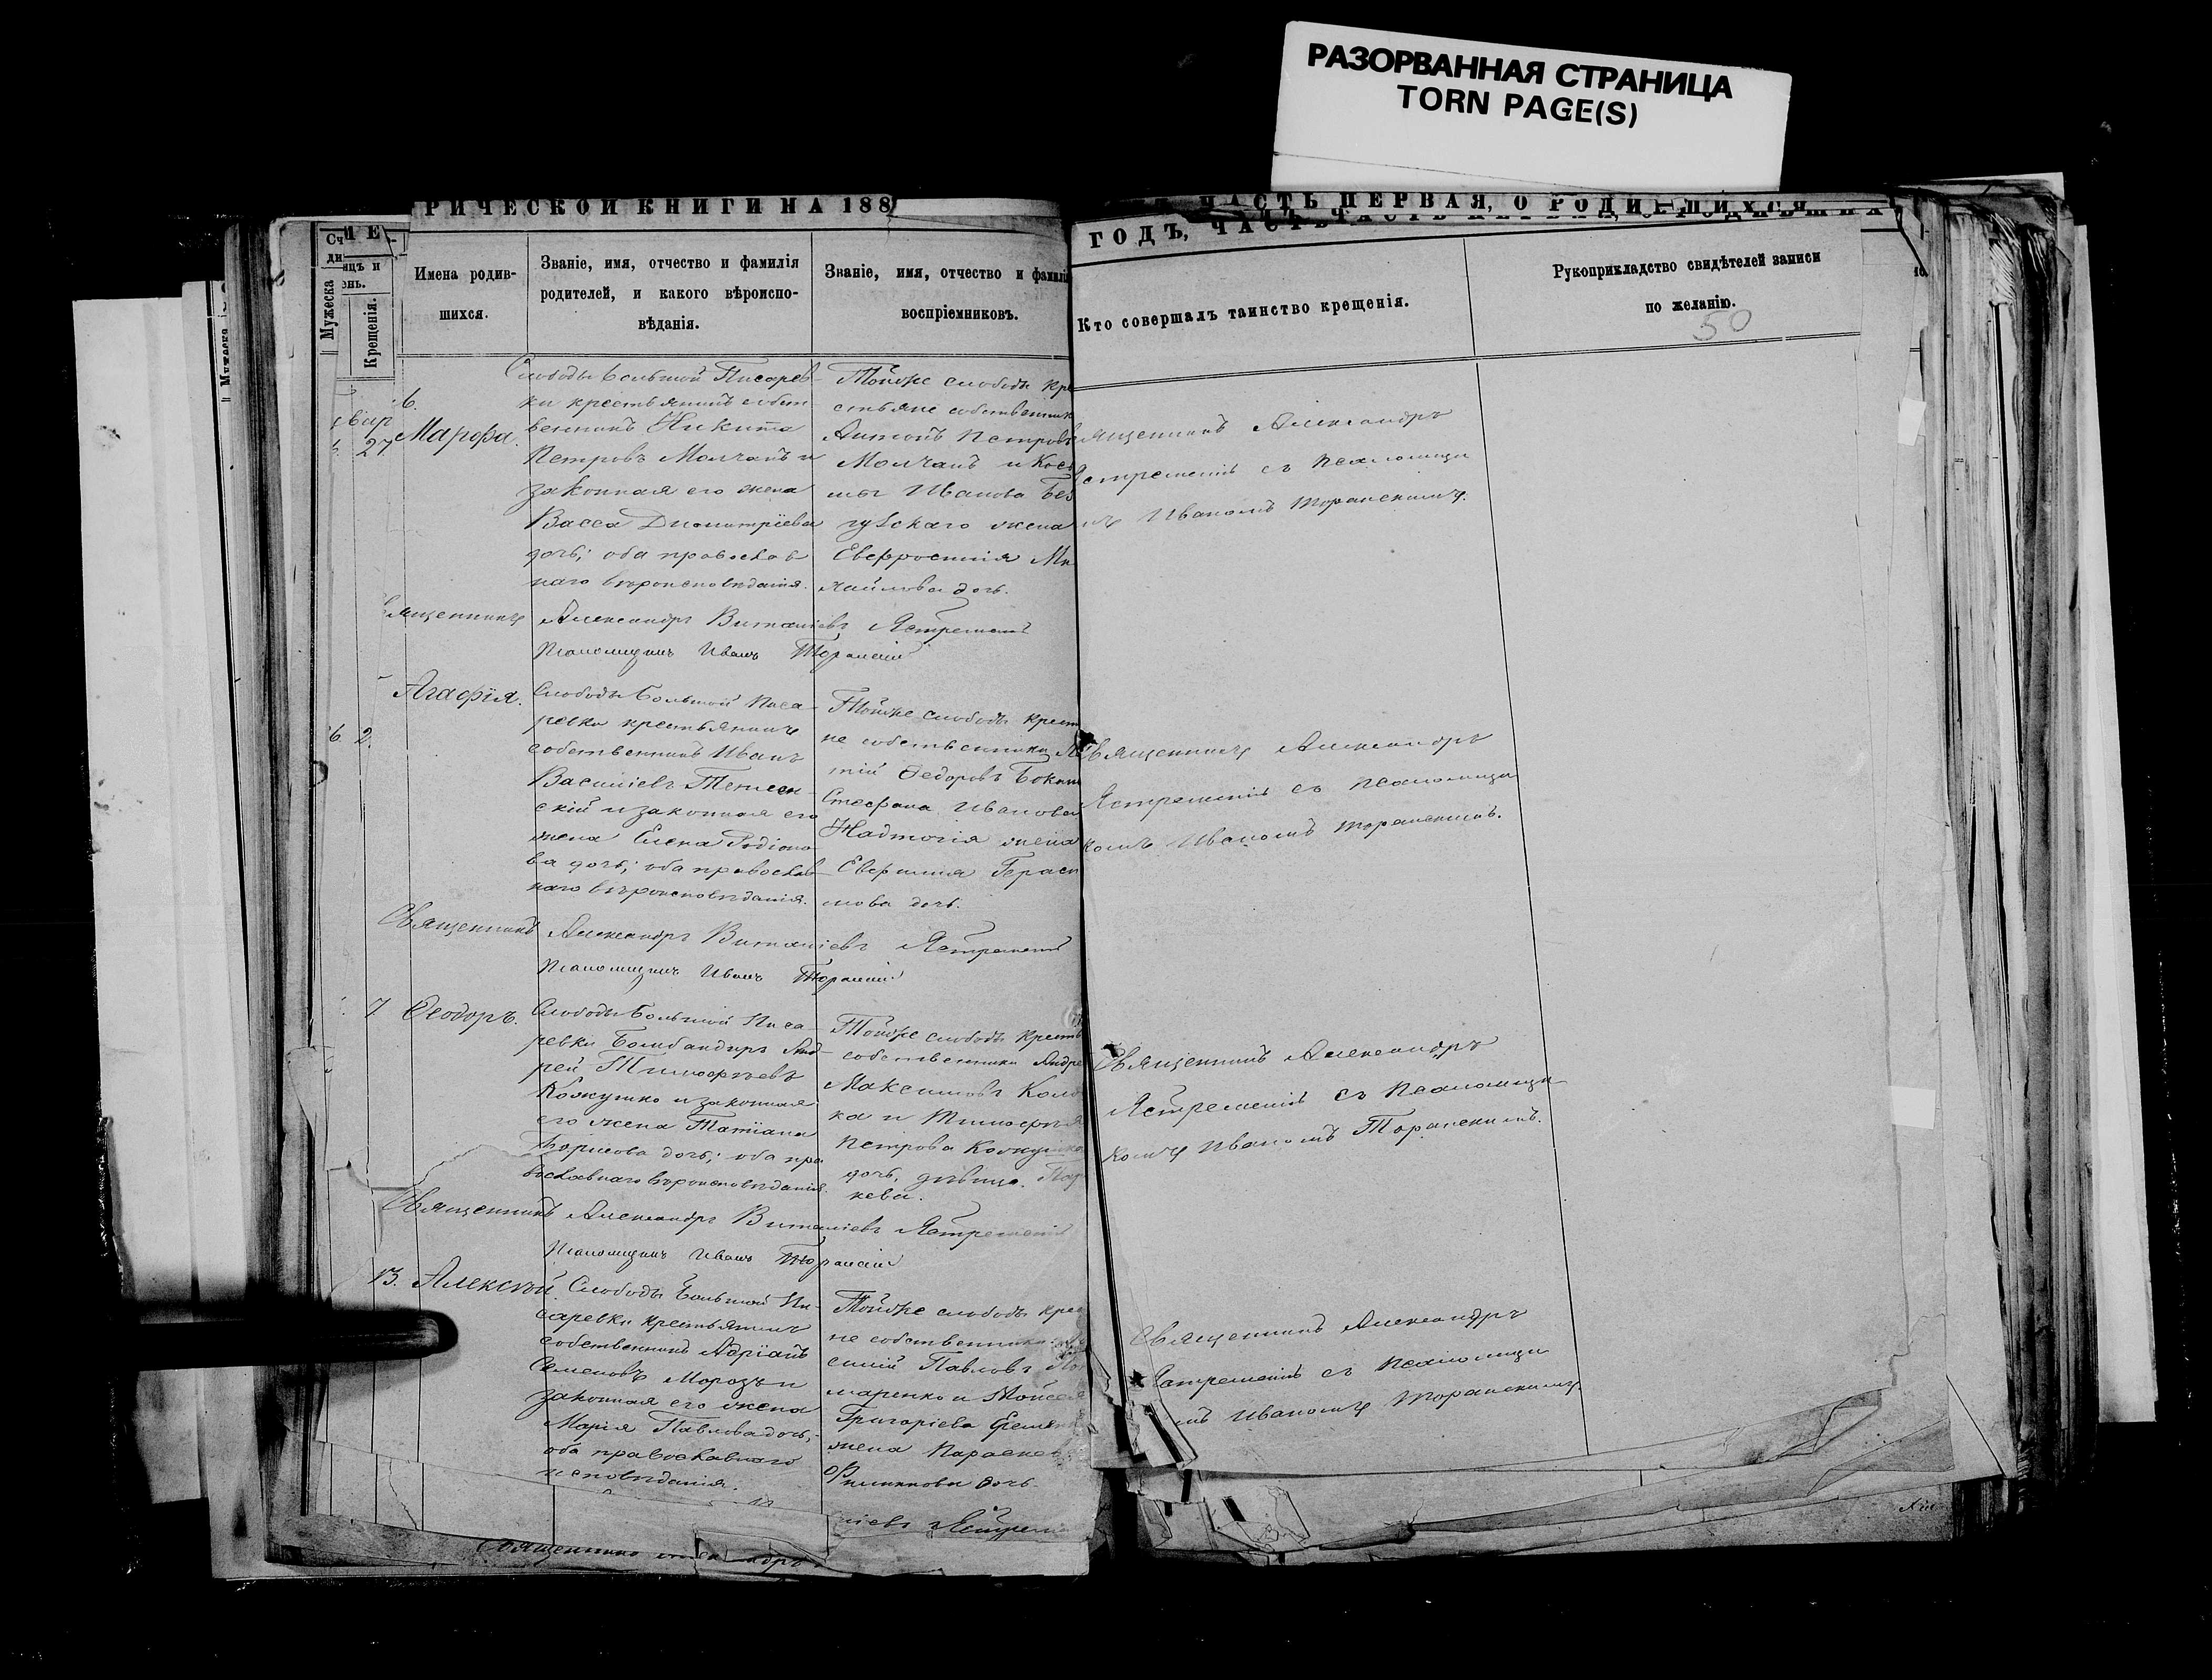 РАЗОРВАННАЯ СТРАНИЦА
TORN PAGE(S)
РИЧЕСКОЙ КНИГИ НА 188
ЧАСТЬ ПЕРВАЯ, О РОДИВШИХСЯ
ГОДЪ,
Имена родив-
шихся.
Званіе, имя, отчество и фамилія
родителей, и какого вѣроиспо-
вѣданія.
Званіе, имя, отчество и фамилі
воспріемниковъ.
Кто совершалъ таинство крещенія.
Рукоприкладство свидѣтелей записи
по желанію.
50
Мужеска
Крещенія.
27
Марфа.
Слободы Большой Писарев-
ки крестьянинъ собст
венникъ Никита
Петровъ Молчанъ и
законная его жена
Васса Димитріева
дочь; оба православ
наго вѣроисповѣданія.
Тойже слободы кре
стьяне собственник
Антонъ Петровъ
Молчанъ и Кось
мы Иванова Без
жена
Евфросинія Ми
хайлова дочь.
Священникъ Александръ
съ псаломщи
Иваномъ Торанскимъ.
Священникъ Александръ Виталіевъ Ястремскій
Псаломщикъ Иванъ Торанскій
2.
Агафія.
Слободы Большой Писа-
ревки крестьянинъ
собственникъ Иванъ
Васильевъ
скій и законная его
жена Елена Родіоно
ва дочь; оба православ
наго вѣроисповѣданія.
Тойже слободы крест
не собственники
тій Федоровъ
Стефана Иванова
Надточія жена
Евфимія Гераси
мова дочь.
Священникъ Александръ
Ястремскій съ псаломщи
комъ Иваномъ Торанскимъ.
Священникъ Александръ Виталіевъ Ястремскій
Псаломщикъ Иванъ Торанскій
7
Ѳеодоръ.
Слободы Большой Писа-
ревки Бомбандиръ Анд-
рей Тимофѣевъ
Кожушко и законная
его жена Татіана
Борисова дочь; оба пра
вославнаго вѣроисповѣданія.
Тойже слободы крестья
собственники Андре
Максимовъ
ка и Тимофея
Петрова Кожушко
дочь, дѣвица Пар
кева.
Священникъ Александръ
Ястремскій съ Псаломщи
комъ Иваномъ Торанскимъ.
Священникъ Александръ Виталіевъ Ястремскій
Псаломщикъ Иванъ Торанскій
13.
Алексѣй.
Слободы Большой Пи-
саревки крестьянинъ
собственникъ Адріанъ
Семеновъ Морозъ и
законная его жена
Марія Павлова дочь;
оба православнаго
исповѣданія.
Тойже слободы крес
не собственники
силій Павловъ По
маренко и Мойсея
Григоріева
жена Параскев
Филиппова дочь.
Священникъ Александръ
Ястремскій съ псаломщи
Иваномъ Торанскимъ